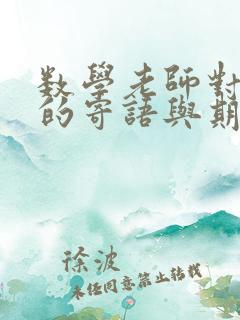 数學老師對
的寄語與期
徐波
未經同意禁止轉載